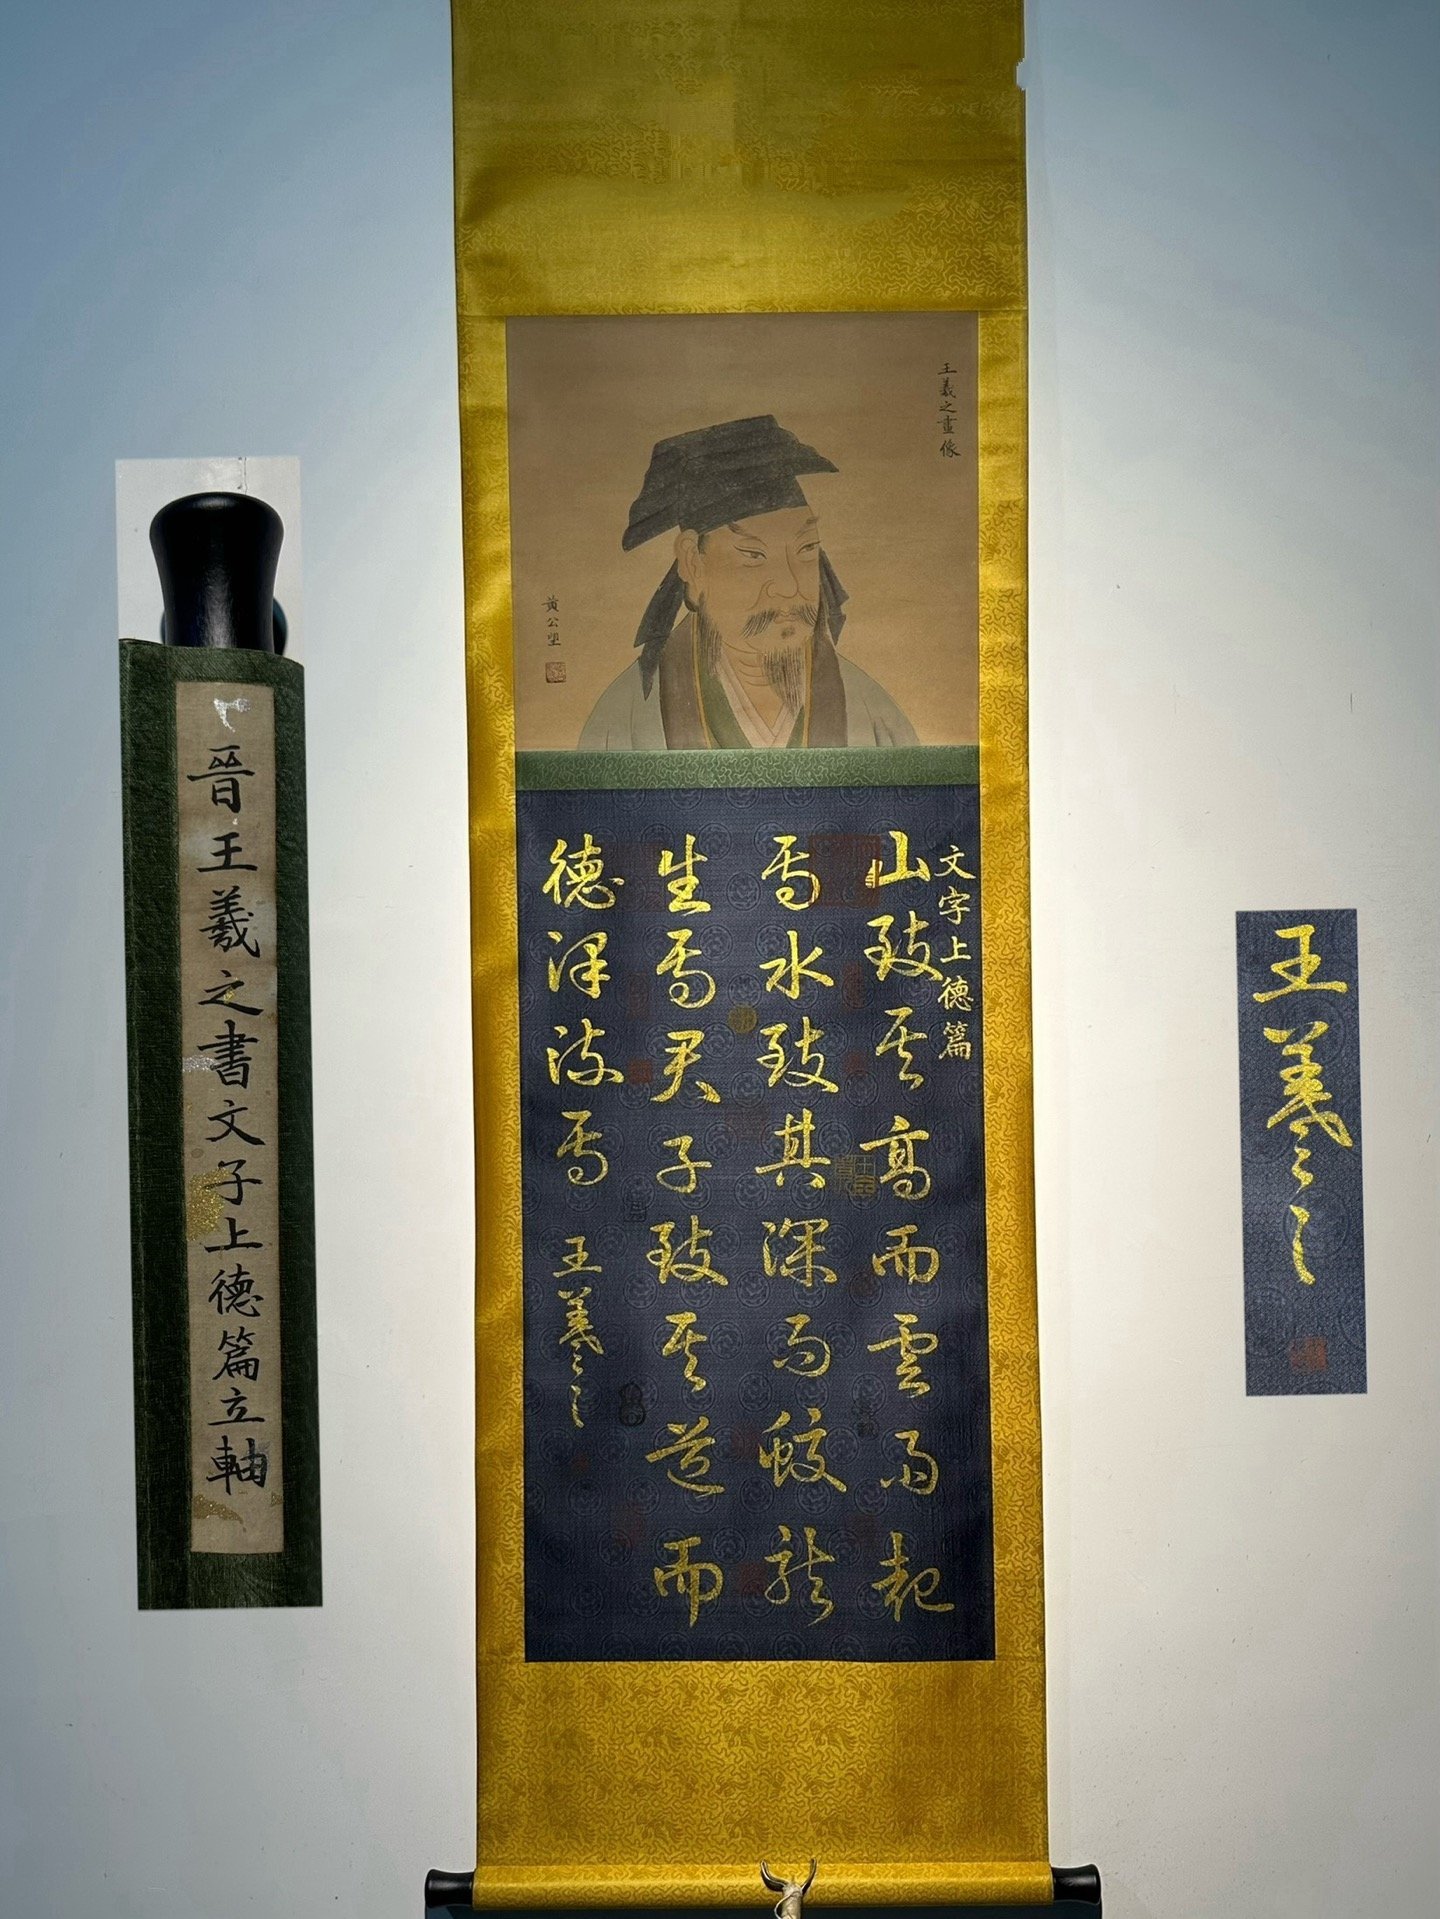 晉王羲之書文子上德篇立軸
王羲之畫像
黃公望
文字上德篇
山致其高而雲雨起
焉水致其深而蛟龍
生焉君子致其道而
德澤流焉
王羲之
王羲之